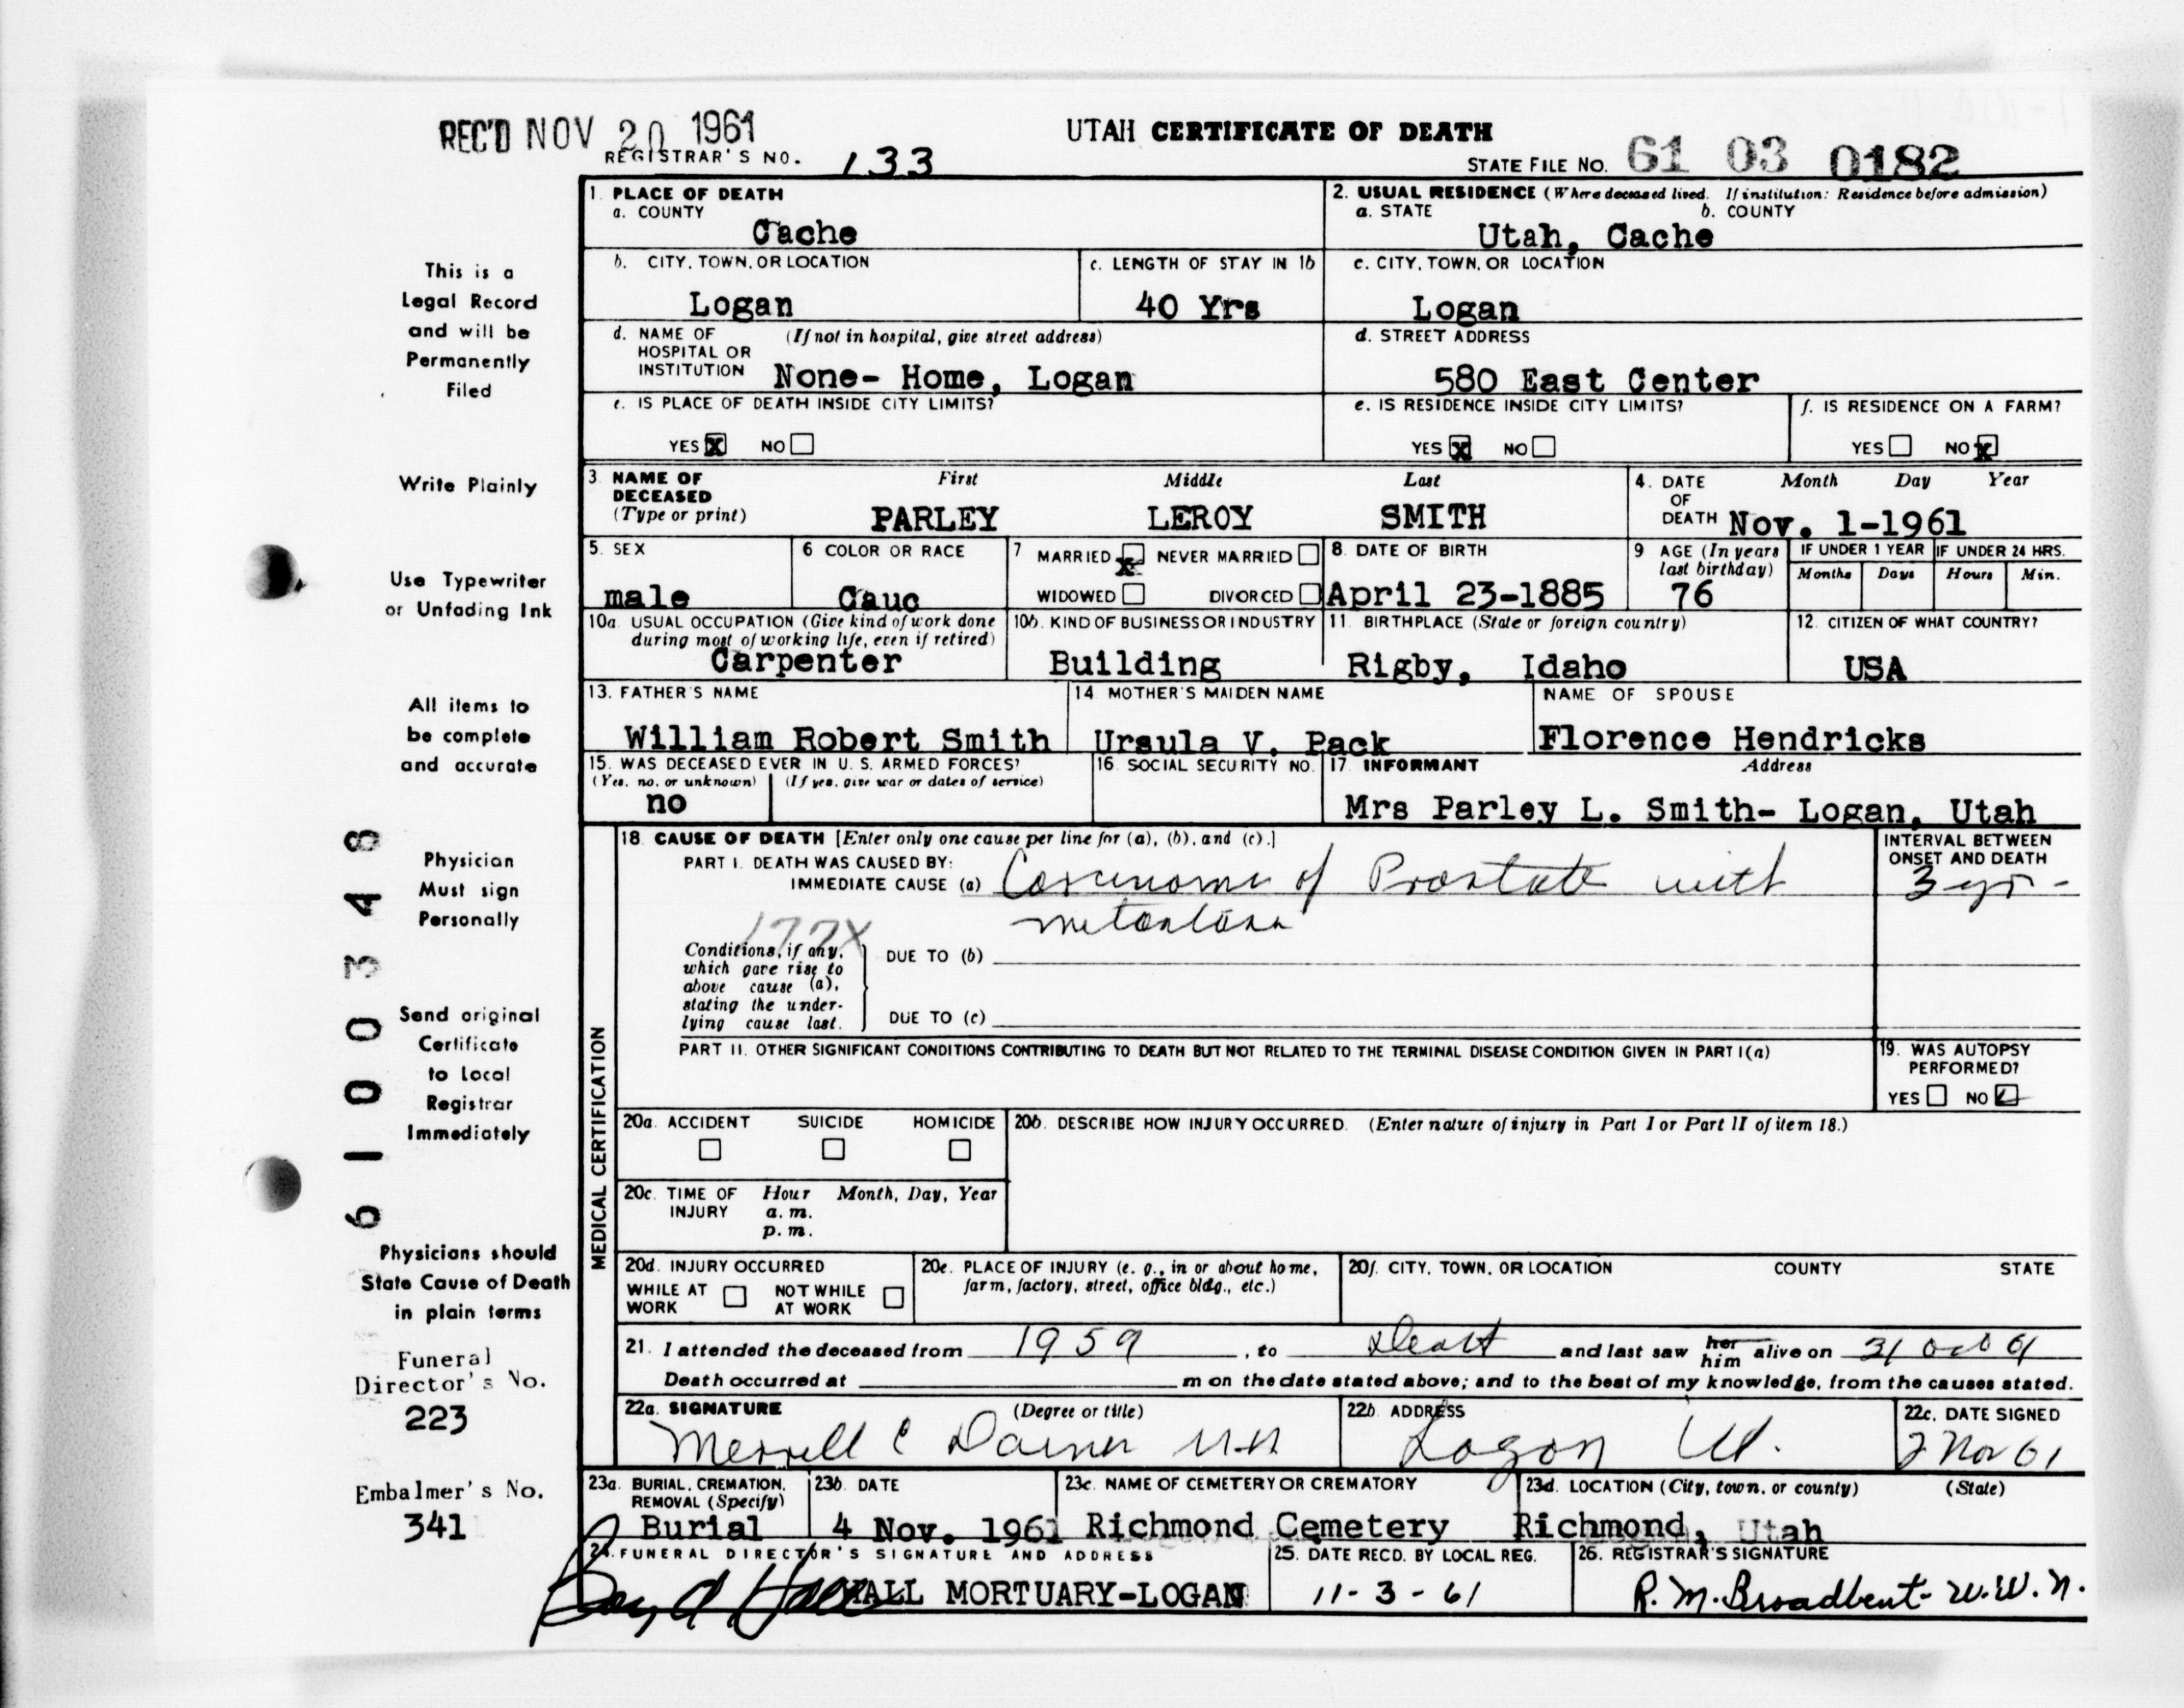 REC'D NOV 20 1961
UTAH CERTIFICATE OF DEATH
REGISTRAR'S NO. 133
STATE FILE NO. 61 03 0182
This is a
Legal Record
and will be
Permanently
Filed
Write Plainly
Use Typewriter
or Unfading Ink
All items to
be complete
and accurate
Physician
Must sign
Personally
Send original
Certificate
to Local
Registrar
Immediately
Physicians should
State Cause of Death
in plain terms
Funeral
Director's No.
223
Embalmer's No.
341
61 00348
1. PLACE OF DEATH
a. COUNTY
Cache
2. USUAL RESIDENCE (Where deceased lived. If institution: Residence before admission)
a. STATE b. COUNTY
Utah, Cache
b. CITY, TOWN, OR LOCATION
Logan
c. LENGTH OF STAY IN 1b
40 Yrs
c. CITY, TOWN, OR LOCATION
Logan
d. NAME OF (If not in hospital, give street address)
HOSPITAL OR
INSTITUTION None- Home, Logan
d. STREET ADDRESS
580 East Center
e. IS PLACE OF DEATH INSIDE CITY LIMITS?
YES X NO
e. IS RESIDENCE INSIDE CITY LIMITS?
YES X NO
f. IS RESIDENCE ON A FARM?
YES NO X
3. NAME OF First Middle Last
DECEASED
(Type or print) PARLEY LEROY SMITH
4. DATE Month Day Year
OF
DEATH Nov. 1-1961
5. SEX
male
6 COLOR OR RACE
Cauc
7 MARRIED X NEVER MARRIED
WIDOWED DIVORCED
8. DATE OF BIRTH
April 23-1885
9 AGE (In years
last birthday)
76
IF UNDER 1 YEAR IF UNDER 24 HRS.
Months Days Hours Min.
10a. USUAL OCCUPATION (Give kind of work done
during most of working life, even if retired)
Carpenter
10b. KIND OF BUSINESS OR INDUSTRY
Building
11. BIRTHPLACE (State or foreign country)
Rigby, Idaho
12. CITIZEN OF WHAT COUNTRY?
USA
13. FATHER'S NAME
William Robert Smith
14 MOTHER'S MAIDEN NAME
Ursula V. Pack
NAME OF SPOUSE
Florence Hendricks
15. WAS DECEASED EVER IN U. S. ARMED FORCES?
(Yes, no, or unknown) (If yes, give war or dates of service)
no
16. SOCIAL SECURITY NO.
17. INFORMANT Address
Mrs Parley L. Smith- Logan, Utah
MEDICAL CERTIFICATION
18. CAUSE OF DEATH [Enter only one cause per line for (a), (b), and (c).]
PART I. DEATH WAS CAUSED BY:
IMMEDIATE CAUSE (a) Carcinoma of Prostate with
INTERVAL BETWEEN
ONSET AND DEATH
3 yr -
177X
Conditions, if any,
which gave rise to
above cause (a),
stating the under-
lying cause last.
DUE TO (b)
DUE TO (c)
PART II. OTHER SIGNIFICANT CONDITIONS CONTRIBUTING TO DEATH BUT NOT RELATED TO THE TERMINAL DISEASE CONDITION GIVEN IN PART I(a)
19. WAS AUTOPSY
PERFORMED?
YES NO
20a. ACCIDENT SUICIDE HOMICIDE
20b. DESCRIBE HOW INJURY OCCURRED. (Enter nature of injury in Part I or Part II of item 18.)
20c. TIME OF Hour Month, Day, Year
INJURY a. m.
p. m.
20d. INJURY OCCURRED
WHILE AT NOT WHILE
WORK AT WORK
20e. PLACE OF INJURY (e. g., in or about home,
farm, factory, street, office bldg., etc.)
20f. CITY, TOWN, OR LOCATION COUNTY STATE
21. I attended the deceased from 1959, to Death and last saw her him alive on 31 Oct 61
Death occurred at m on the date stated above; and to the best of my knowledge, from the causes stated.
22a. SIGNATURE (Degree or title)
Merrill C Daines M.D
22b. ADDRESS
Logan Ut.
22c. DATE SIGNED
2 Nov 61
23a. BURIAL, CREMATION,
REMOVAL (Specify)
Burial
23b. DATE
4 Nov. 1961
23c. NAME OF CEMETERY OR CREMATORY
Richmond Cemetery
23d. LOCATION (City, town, or county) (State)
Richmond, Utah
24. FUNERAL DIRECTOR'S SIGNATURE AND ADDRESS
HALL MORTUARY-LOGAN
25. DATE RECD. BY LOCAL REG.
11-3-61
26. REGISTRAR'S SIGNATURE
R. M. Broadbent- W. W. N.